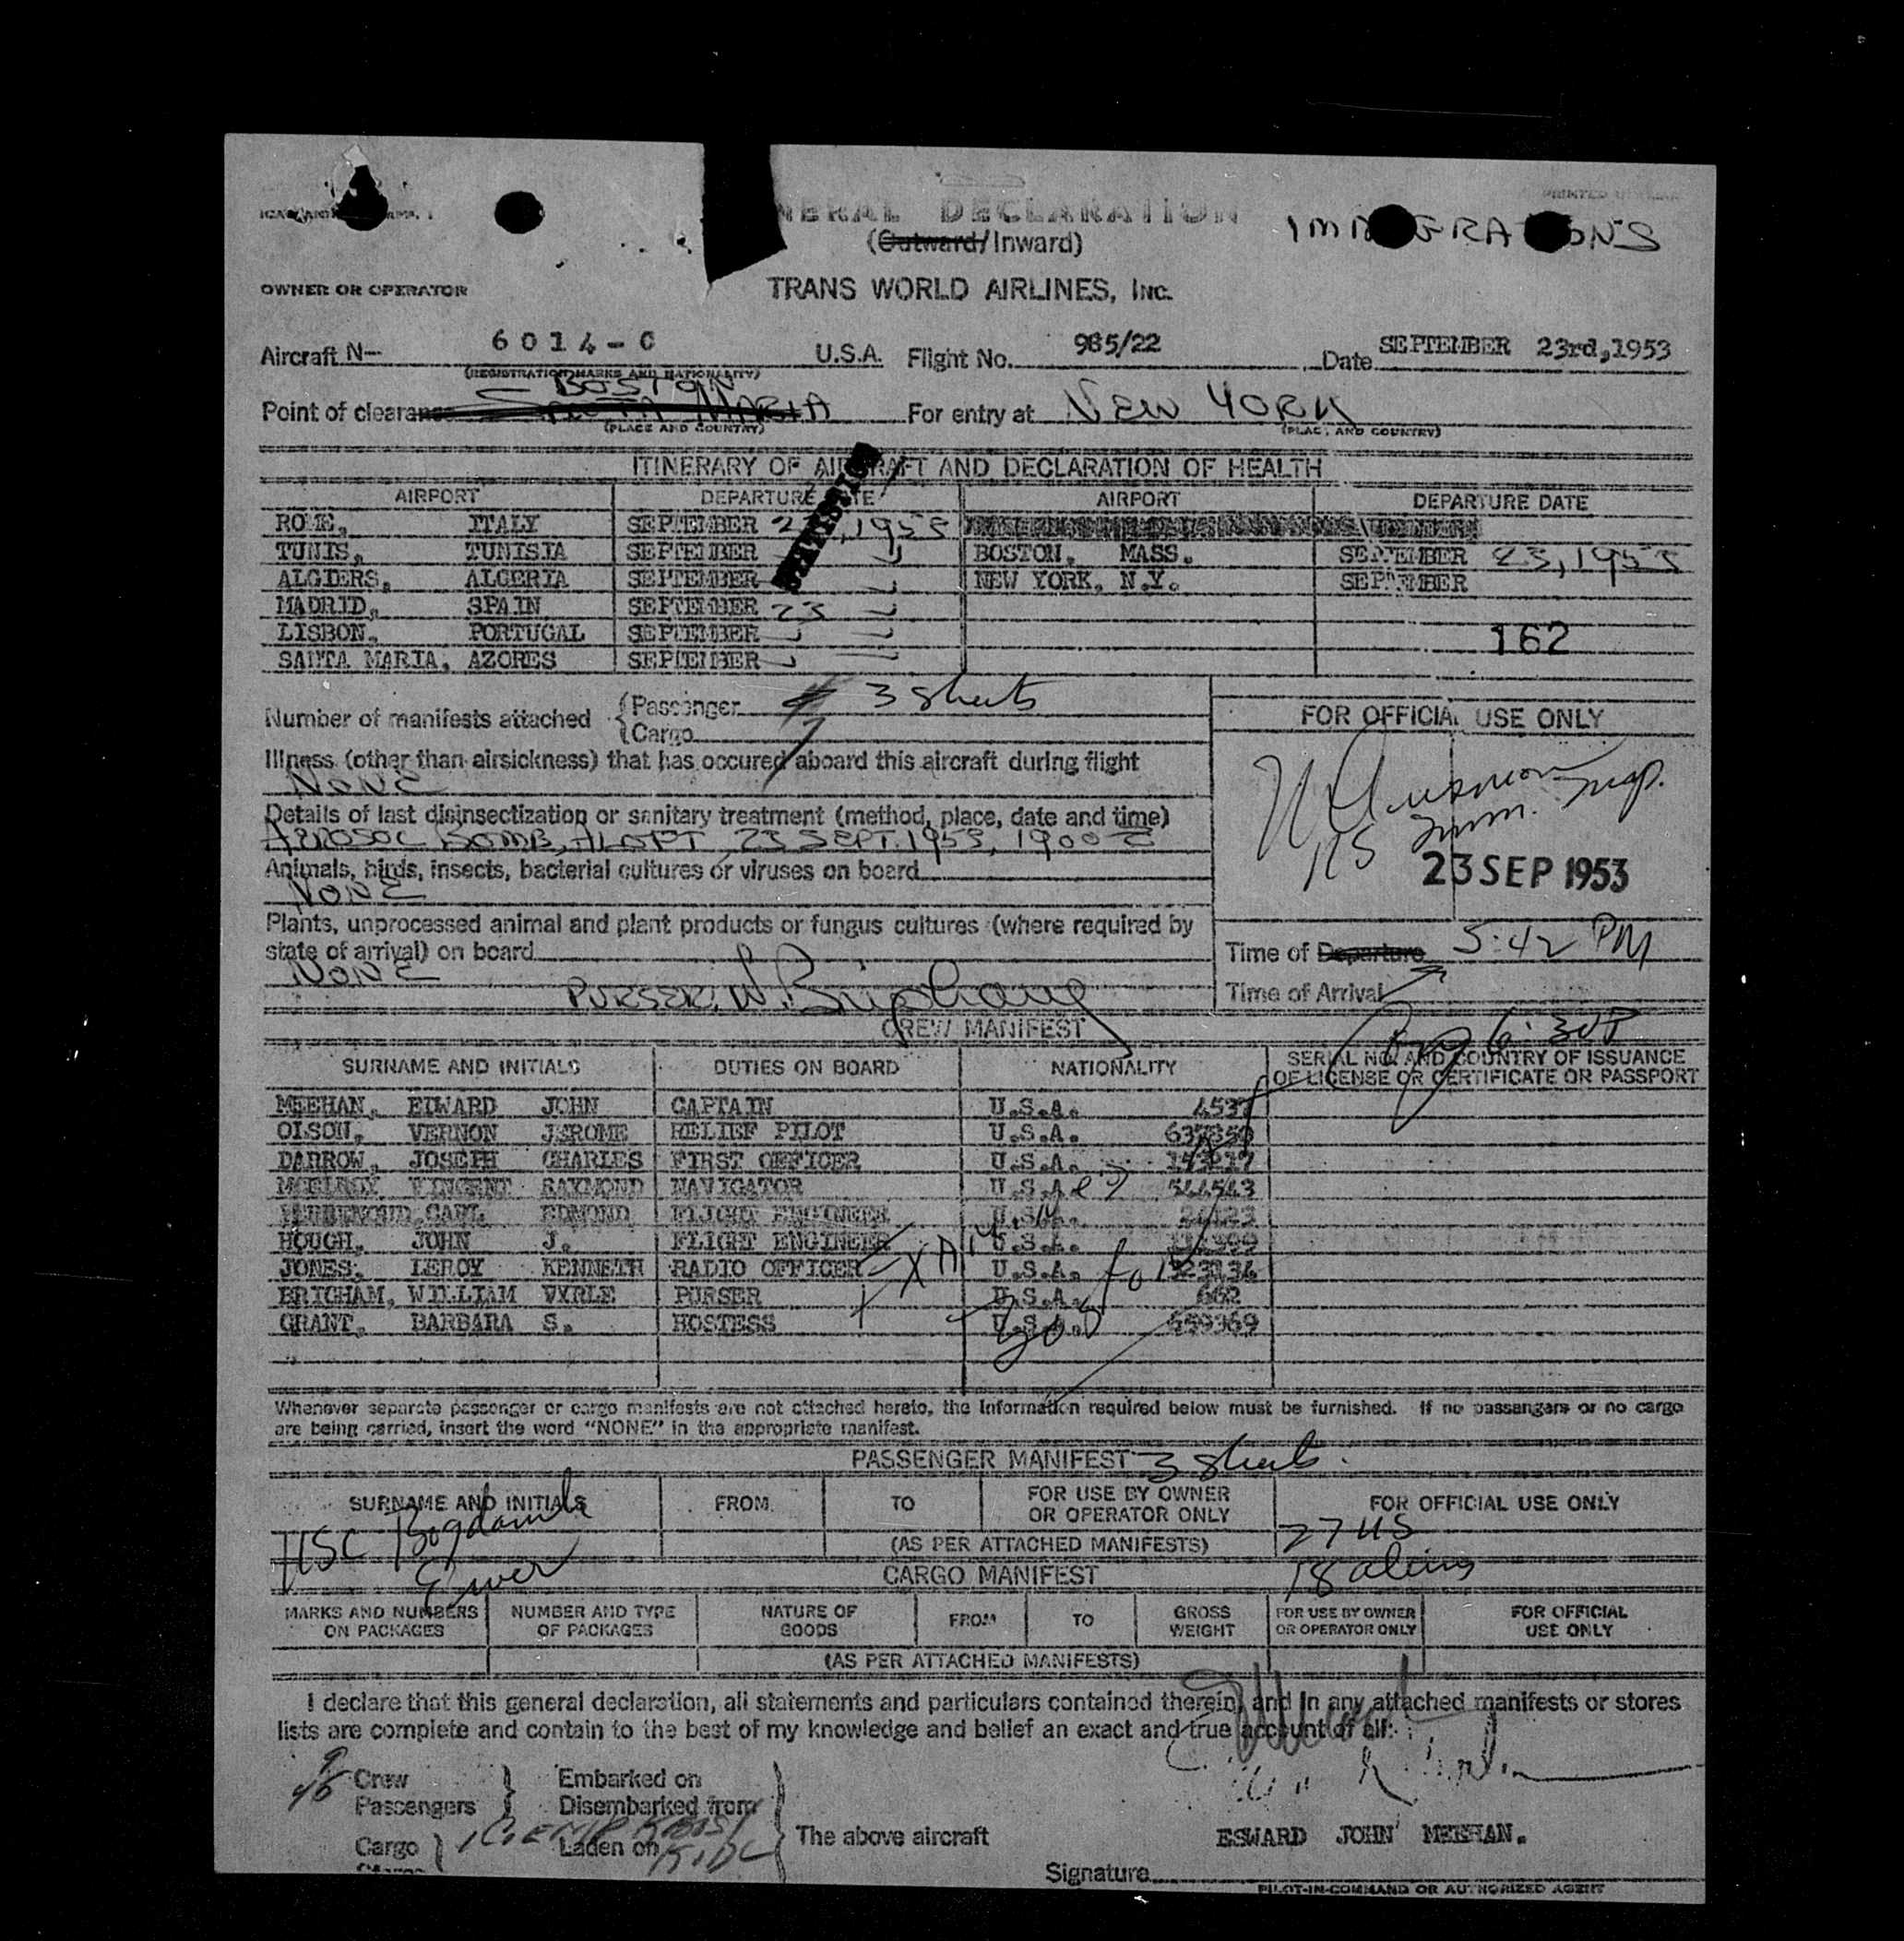 GENERAL DECLARATION
IMMIGRATIONS
(Outward/Inward)
OWNER OR OPERATOR
TRANS WORLD AIRLINES, INC.
Aircraft N- 6014-C U.S.A. Flight No. 985/22 Date SEPTEMBER 23rd, 1953
(REGISTRATION MARKS AND NATIONALITY)
BOSTON
Point of clearance SANTA MARIA For entry at NEW YORK
(PLACE AND COUNTRY) (PLACE AND COUNTRY)
ITINERARY OF AIRCRAFT AND DECLARATION OF HEALTH
AIRPORT DEPARTURE DATE AIRPORT DEPARTURE DATE
ROME, ITALY SEPTEMBER , 1953
TUNIS, TUNISIA SEPTEMBER BOSTON, MASS. SEPTEMBER 23, 1953
ALGIERS, ALGERIA SEPTEMBER NEW YORK, N.Y. SEPTEMBER
MADRID, SPAIN SEPTEMBER 23
LISBON, PORTUGAL SEPTEMBER 162
SANTA MARIA, AZORES SEPTEMBER
Number of manifests attached Passenger 3 sheets
Cargo
FOR OFFICIAL USE ONLY
Illness (other than airsickness) that has occured aboard this aircraft during flight
NONE
Details of last disinsectization or sanitary treatment (method, place, date and time)
AEROSOL BOMB, ALOFT, 23 SEPT. 1953, 1900 Z
US Imm. Insp.
23 SEP 1953
Animals, birds, insects, bacterial cultures or viruses on board
NONE
Plants, unprocessed animal and plant products or fungus cultures (where required by
state of arrival) on board
NONE
Time of Departure 5:42 PM
Time of Arrival
PURSER: W. Brigham
6:30P
CREW MANIFEST
SURNAME AND INITIALS DUTIES ON BOARD NATIONALITY SERIAL NO. AND COUNTRY OF ISSUANCE
OF LICENSE OR CERTIFICATE OR PASSPORT
MEEHAN, EDWARD JOHN CAPTAIN U.S.A. 4537
OLSON, VERNON JEROME RELIEF PILOT U.S.A.
DARROW, JOSEPH CHARLES FIRST OFFICER U.S.A.
MCELROY VINCENT RAYMOND NAVIGATOR U.S.A. 544543
CARL EDMOND FLIGHT ENGINEER U.S.A.
HOUGH, JOHN J. FLIGHT ENGINEER U.S.A.
JONES, LEROY KENNETH RADIO OFFICER U.S.A.
BRIGHAM, WILLIAM VYRLE PURSER U.S.A. 662
GRANT, BARBARA S. HOSTESS U.S.A. 659369
Whenever separate passenger or cargo manifests are not attached hereto, the information required below must be furnished. If no passengers or no cargo
are being carried, insert the word "NONE" in the appropriate manifest.
PASSENGER MANIFEST 3 sheets.
SURNAME AND INITIALS FROM TO FOR USE BY OWNER
OR OPERATOR ONLY FOR OFFICIAL USE ONLY
(AS PER ATTACHED MANIFESTS) 27 US
18 aliens
CARGO MANIFEST
MARKS AND NUMBERS
ON PACKAGES NUMBER AND TYPE
OF PACKAGES NATURE OF
GOODS FROM TO GROSS
WEIGHT FOR USE BY OWNER
OR OPERATOR ONLY FOR OFFICIAL
USE ONLY
(AS PER ATTACHED MANIFESTS)
I declare that this general declaration, all statements and particulars contained therein, and in any attached manifests or stores
lists are complete and contain to the best of my knowledge and belief an exact and true account of all:
9 Crew Embarked on
Passengers Disembarked from
Cargo Laden on The above aircraft
ESWARD JOHN MEEHAN.
Signature
PILOT-IN-COMMAND OR AUTHORIZED AGENT